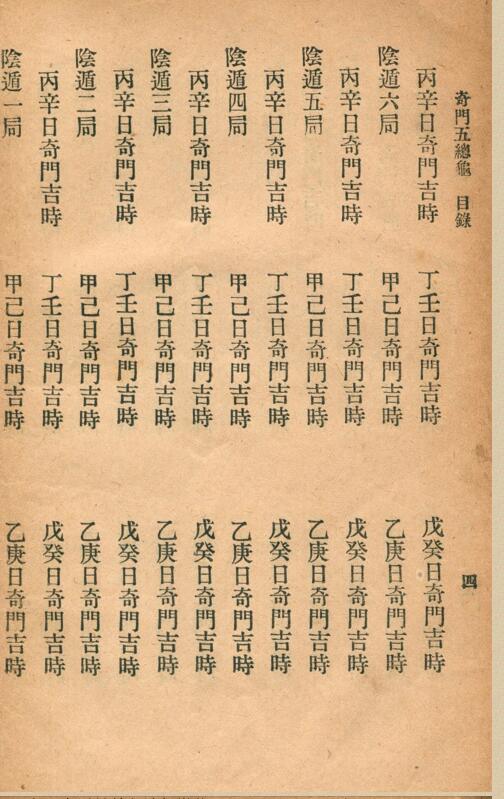 奇門五總龜　目錄
四
丙辛日奇門吉時　丁壬日奇門吉時　戊癸日奇門吉時
陰遁六局　甲己日奇門吉時　乙庚日奇門吉時
丙辛日奇門吉時　丁壬日奇門吉時　戊癸日奇門吉時
陰遁五局　甲己日奇門吉時　乙庚日奇門吉時
丙辛日奇門吉時　丁壬日奇門吉時　戊癸日奇門吉時
陰遁四局　甲己日奇門吉時　乙庚日奇門吉時
丙辛日奇門吉時　丁壬日奇門吉時　戊癸日奇門吉時
陰遁三局　甲己日奇門吉時　乙庚日奇門吉時
丙辛日奇門吉時　丁壬日奇門吉時　戊癸日奇門吉時
陰遁二局　甲己日奇門吉時　乙庚日奇門吉時
丙辛日奇門吉時　丁壬日奇門吉時　戊癸日奇門吉時
陰遁一局　甲己日奇門吉時　乙庚日奇門吉時